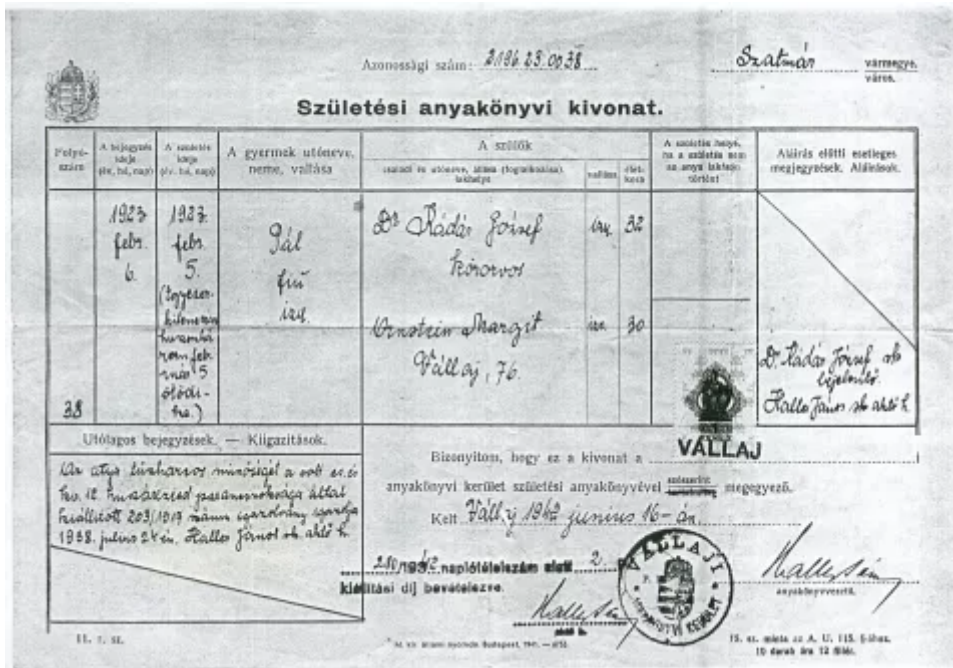 Azonossági szám: 2196.23.0038
Szatmár vármegye,
város.
Születési anyakönyvi kivonat.
Folyó-
szám
A bejegyzés
ideje
(év, hó, nap)
A születés
ideje
(év, hó, nap)
A gyermek utóneve,
neme, vallása
A szülők
családi és utóneve, állása (foglalkozása),
lakhelye
vallása
élet-
kora
A születés helye,
ha a születés nem
az anya lakásán
történt
Aláírás előtti esetleges
megjegyzések, Aláírások.
38
1923
febr.
6.
1923
febr.
5.
(Egyezer-
kilencszáz
huszonhá
rom feb
ruár 5
ötödi-
ke.)
Pál
fiú
izr.
Dr Kádár József
körorvos
izr. 32
Ornstein Margit
Vállaj, 76.
izr. 30
Dr. Kádár József sk
bejelentő.
Halles János sk akvő h.
Utólagos bejegyzések. — Kiigazítások.
Az atya tűzharcos minőségét a volt cs. és
kir. 12. huszárezred parancsnoksága által
kiállított 203/1919 számú igazolvány igazolja
1938. julius 24 én. Halles János sk.
Bizonyítom, hogy ez a kivonat a VÁLLAJ
anyakönyvi kerület születési anyakönyvével szószerint megegyező.
Kelt Vállaj 1942 junius 16-án.
naplótételszám alatt 2
kiállítási díj bevételezve.
VÁLLAJI
ANYAKÖNYVI KERÜLET
anyakönyvvezető.
11. r. sz.
M. kir. állami nyomda, Budapest, 1941.
15. sz. minta az A. U. 115. §-ához.
10 darab ára 12 fillér.